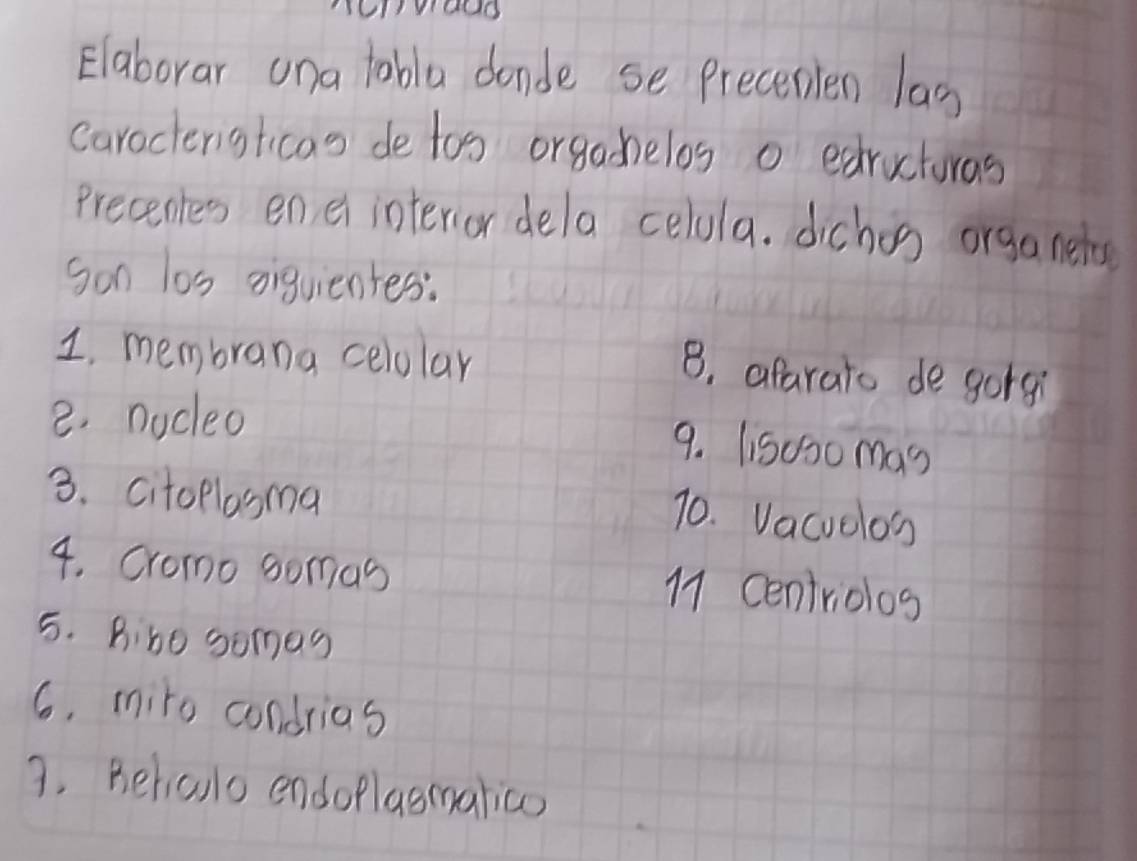 Elaborar una tabla donde se Precenten las
caracteristicas de los organelos o estructuras
Precentes en el interior dela celula. dichos organelos
son los siguientes:
1. membrana celular
2. nucleo
3. citoplasma
4. Cromo somas
5. Ribo somas
6. mito condrias
7. Reticulo endoplasmatico
8. aparato de golgi
9. lisosomas
10. Vacuolas
11 Centriolos